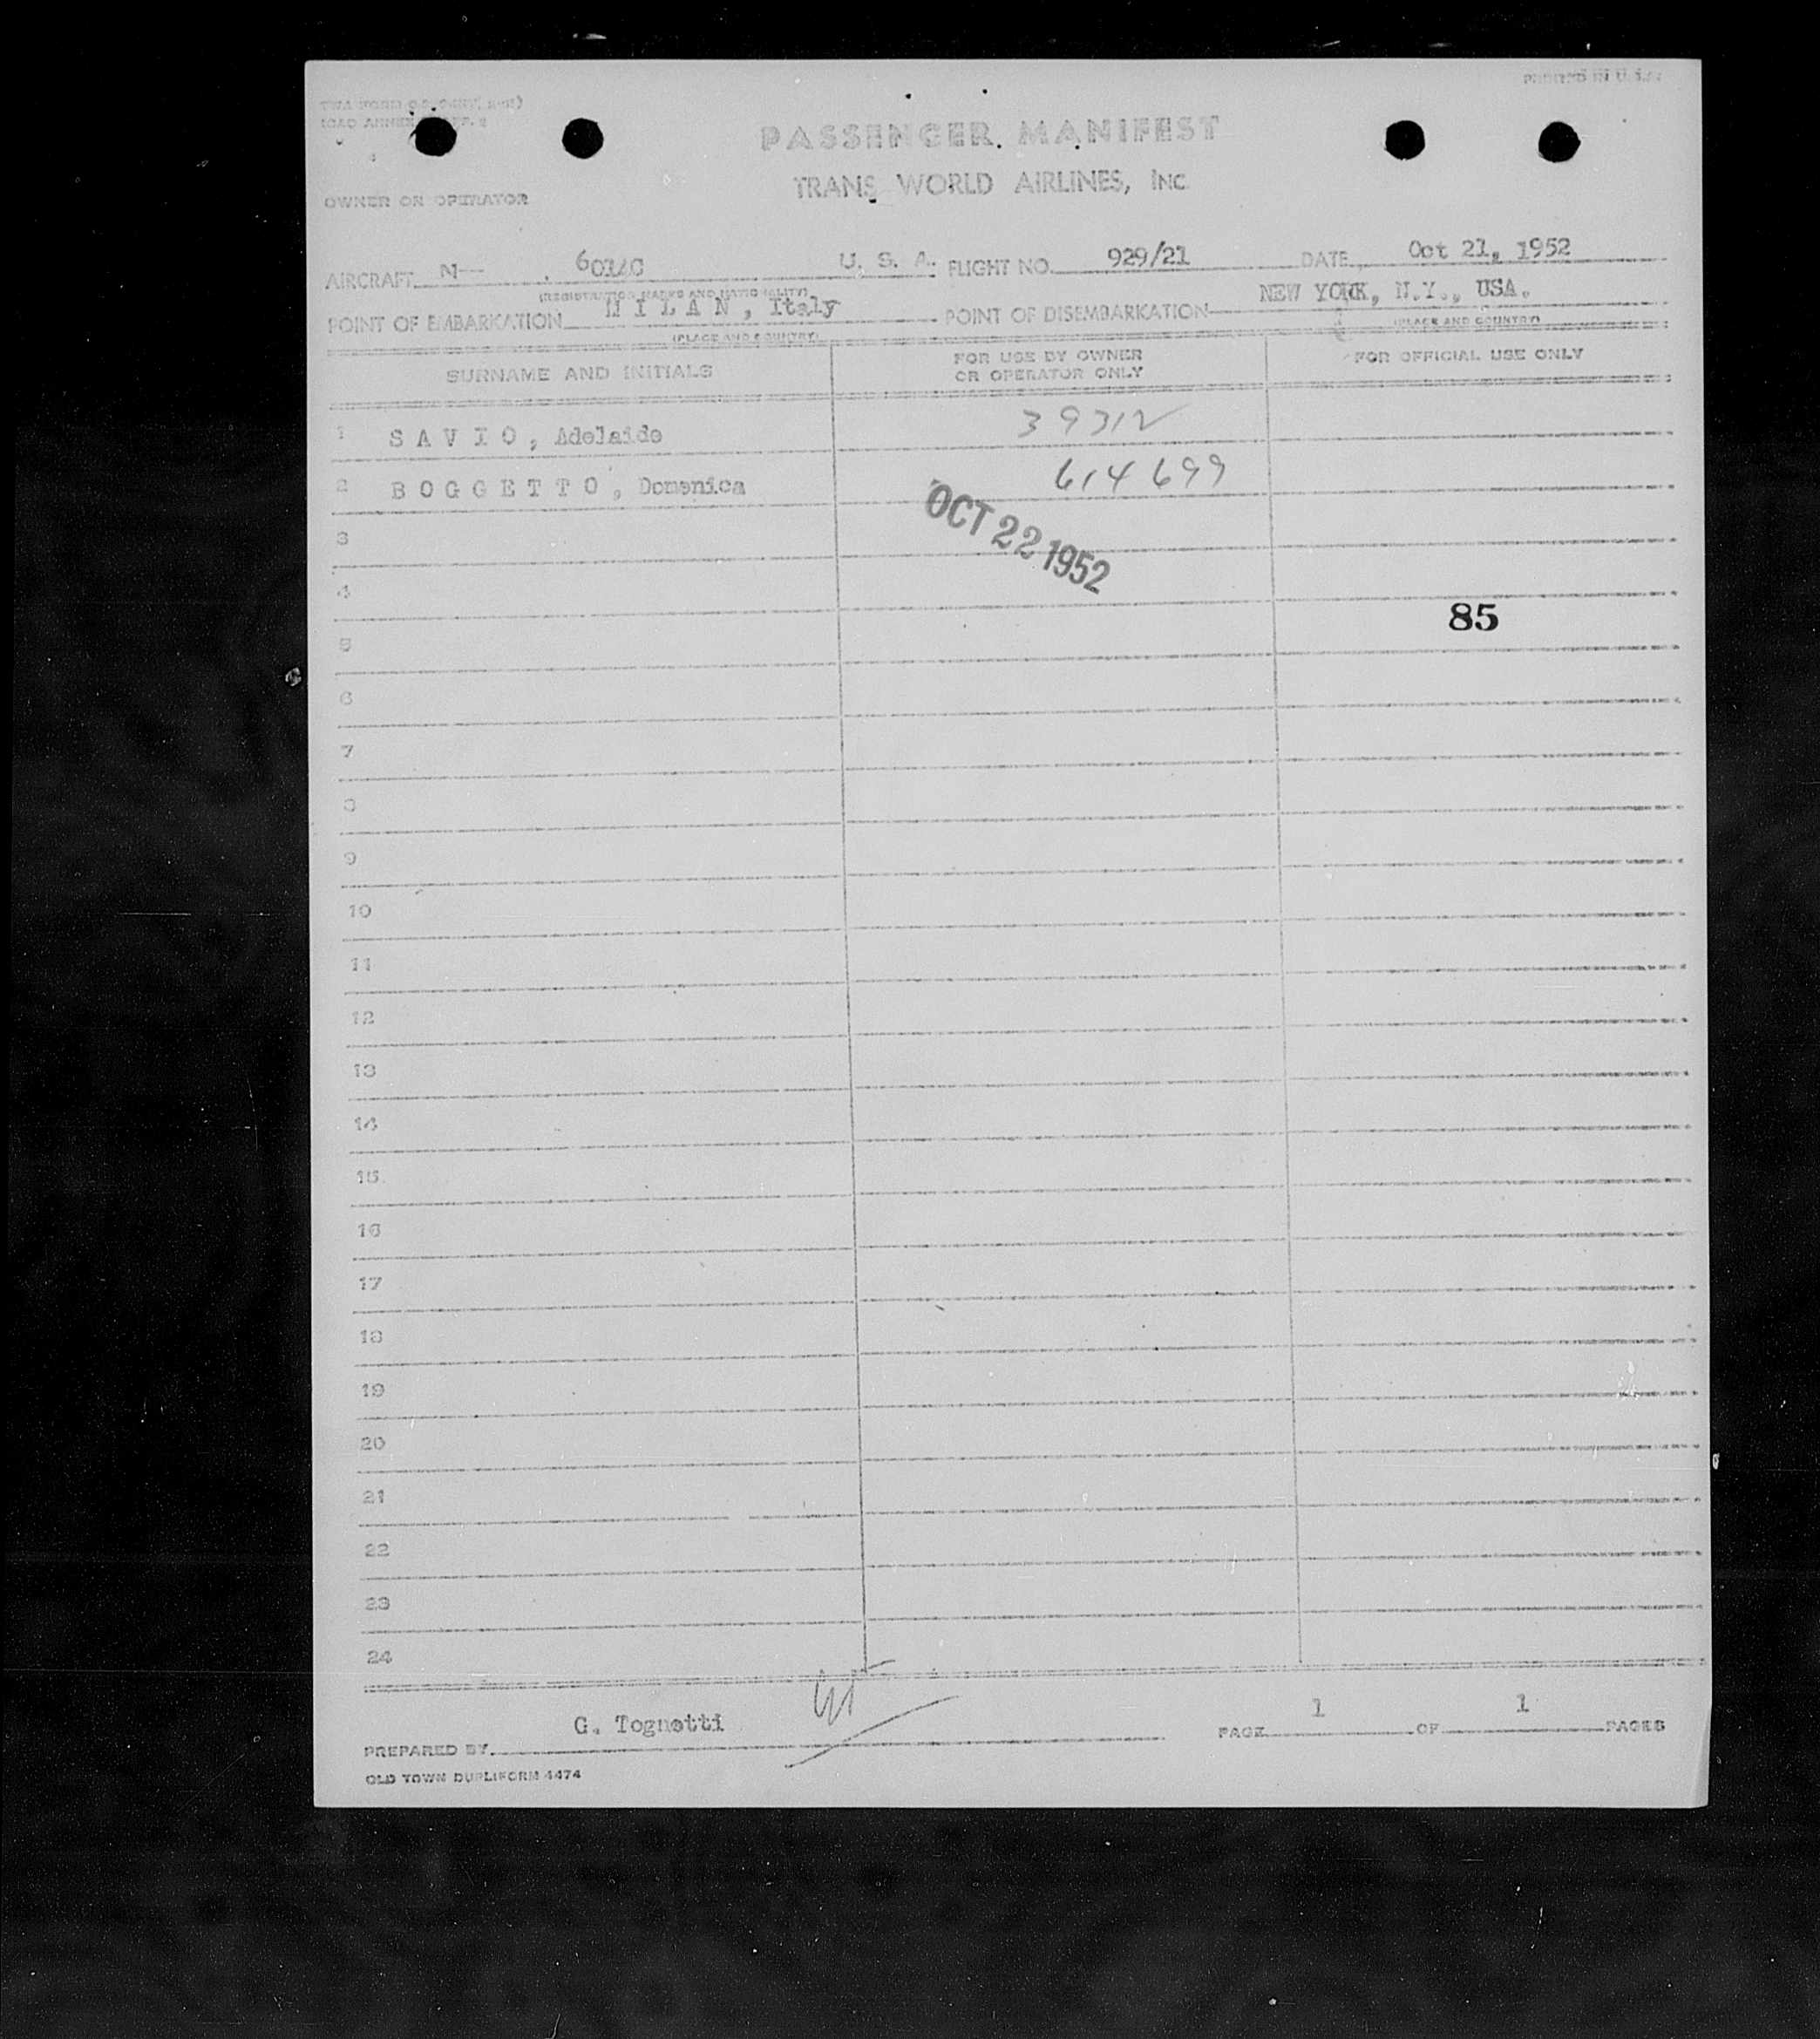 PRINTED IN U.S.A.
PASSENGER MANIFEST
TRANS WORLD AIRLINES, INC.
OWNER OR OPERATOR
AIRCRAFT N-- 6014C U. S. A. FLIGHT NO. 929/21 DATE Oct 21, 1952
(REGISTRATION MARKS AND NATIONALITY)
POINT OF EMBARKATION M I L A N , Italy POINT OF DISEMBARKATION NEW YORK, N.Y., USA.
(PLACE AND COUNTRY) (PLACE AND COUNTRY)
SURNAME AND INITIALS FOR USE BY OWNER OR OPERATOR ONLY FOR OFFICIAL USE ONLY
1 S A V I O , Adelaide 39312
2 B O G G E T T O , Domenica 614699
OCT 22 1952
3
4
85
5
6
7
8
9
10
11
12
13
14
15
16
17
18
19
20
21
22
23
24
PREPARED BY G. Tognetti PAGE 1 OF 1 PAGES
OLD TOWN DUPLIFORM 4474